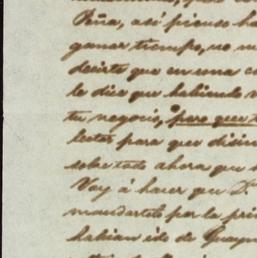 Peña, así pienso ha
ganar tiempo, no m
decirte que en una c
le dice que habiendo v
tu negocio, pero que t
lectas para que disim
sobre todo ahora que s
Voy á hacer que D.
mandartelo por la pri
habian ido de Guaym